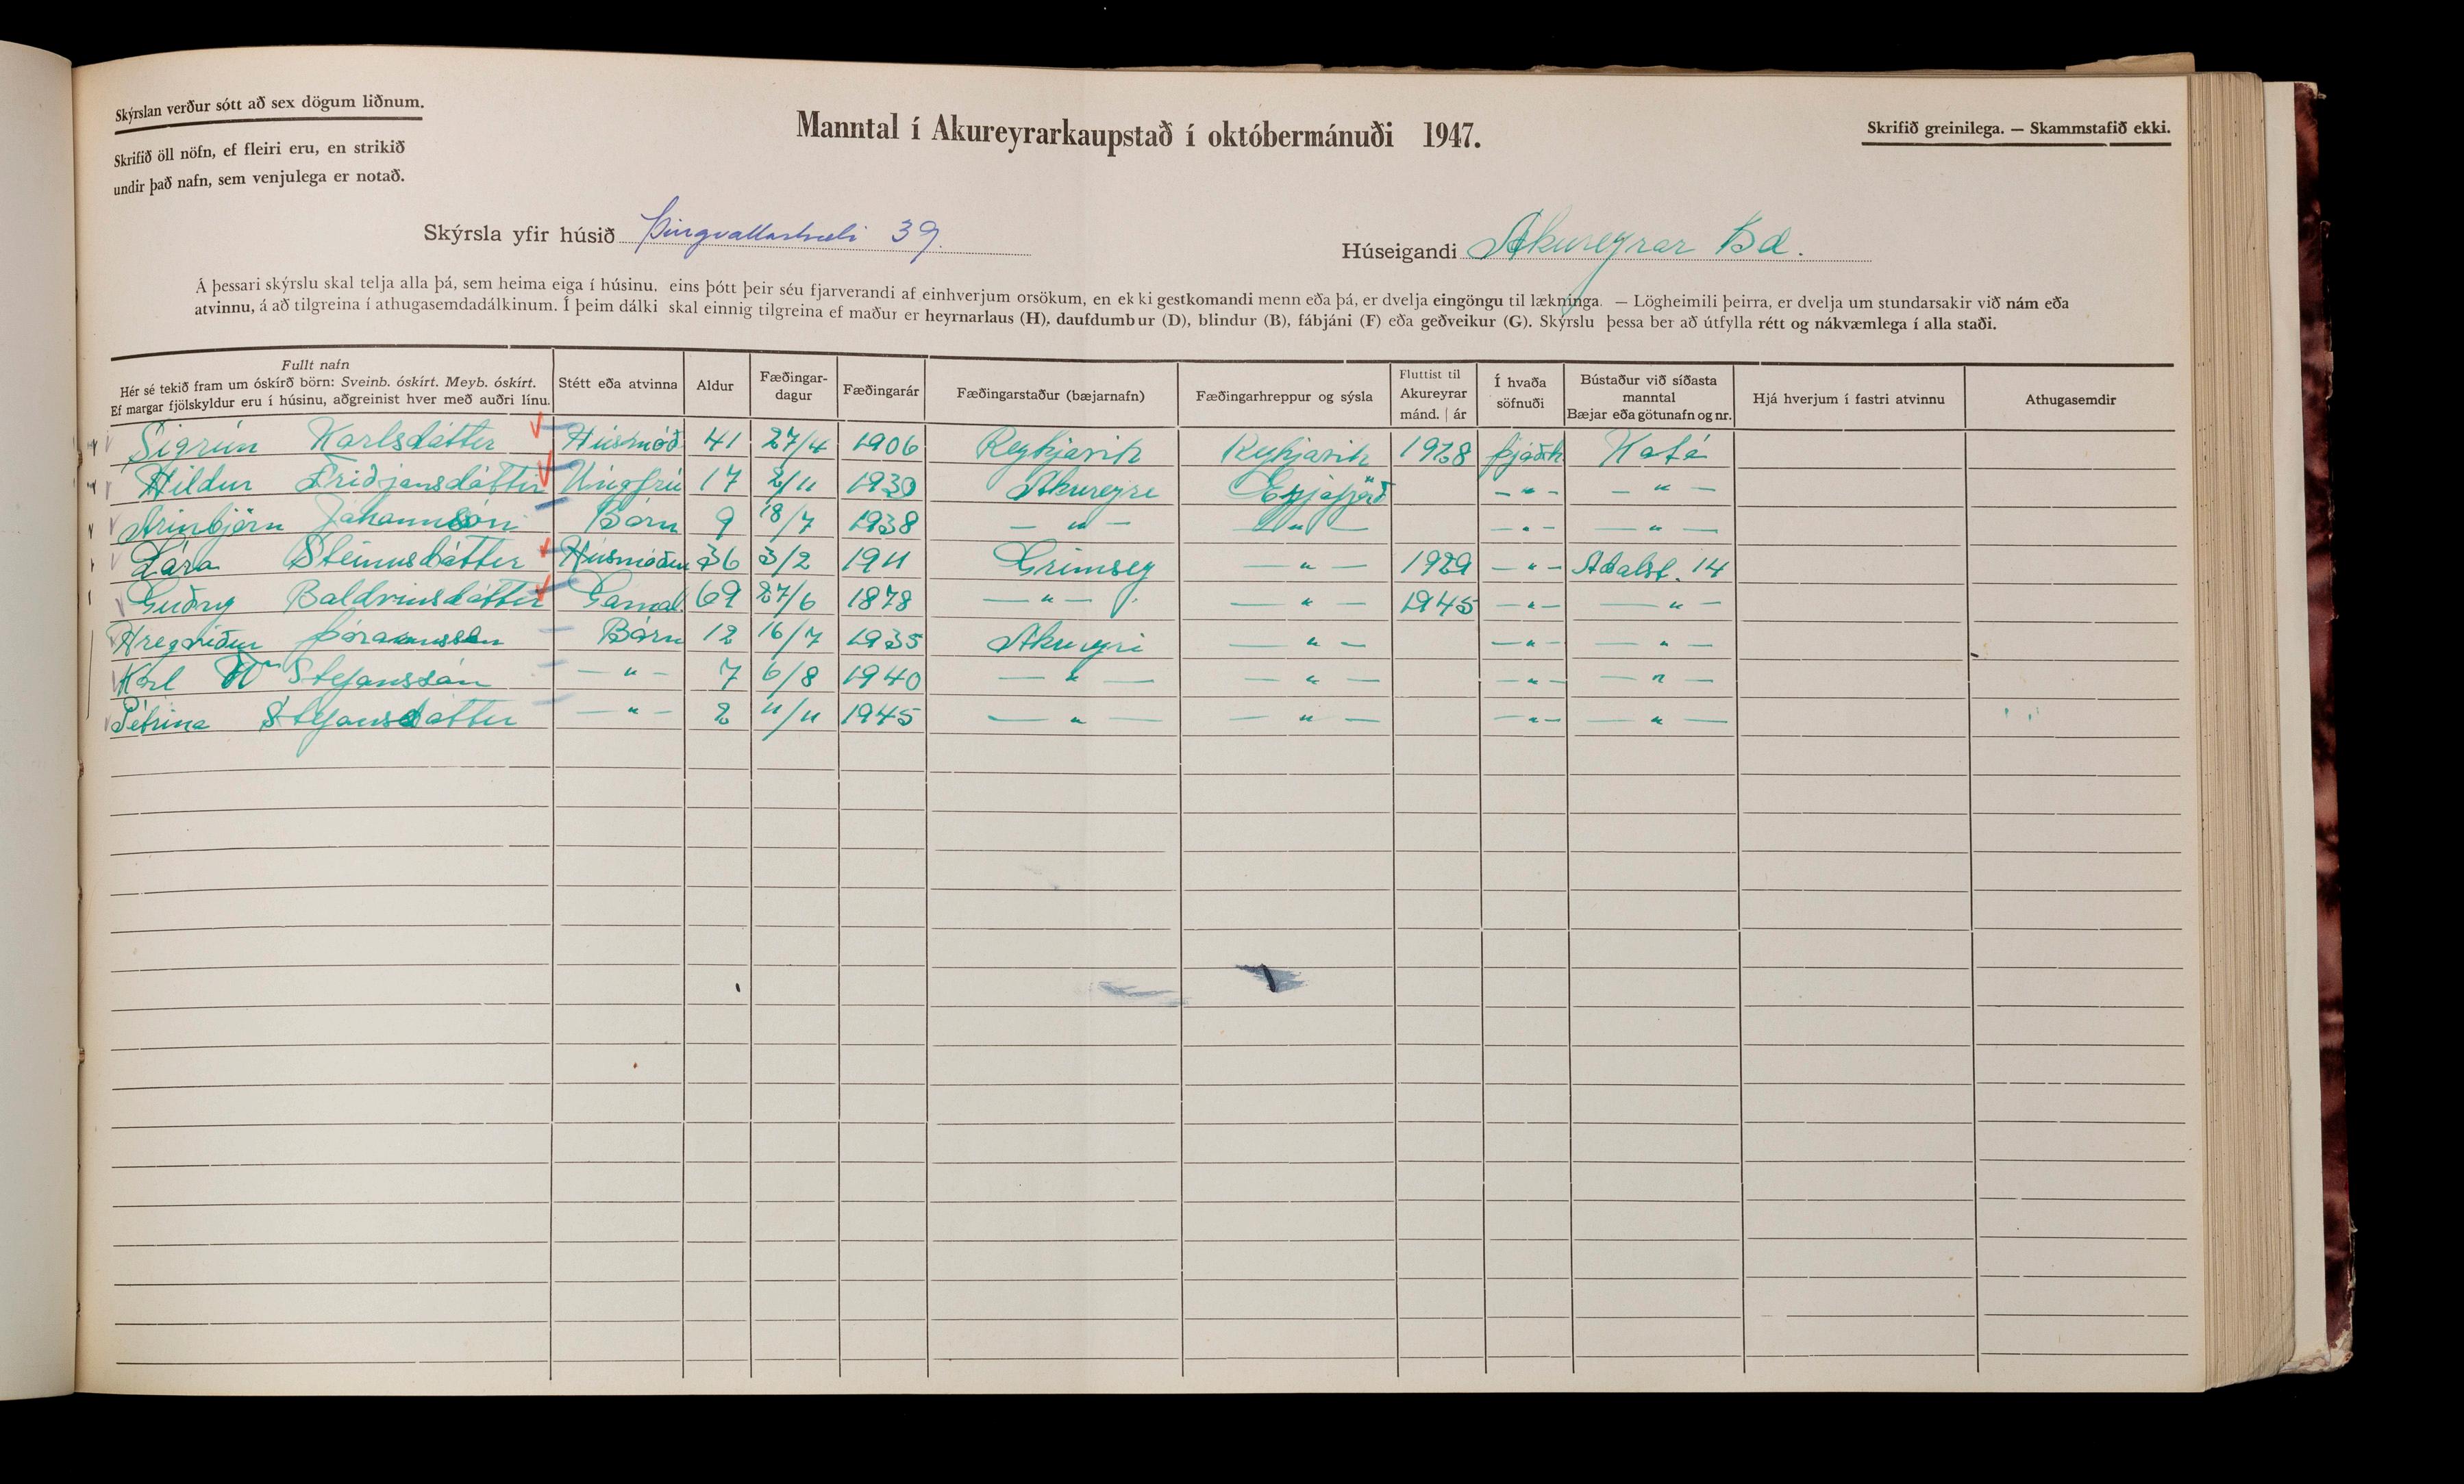 Skýrslan verður sótt að sex dögum liðnum.
Skrifið öll nöfn, ef fleiri eru, en strikið
undir það nafn, sem venjulega er notað.
Manntal í Akureyrarkaupstað í októbermánuði 1947.
Skrifið greinilega. — Skammstafið ekki.
Skýrsla yfir húsið Þingvallastræti 39.
Húseigandi Akureyrar Bæ.
Á þessari skýrslu skal telja alla þá, sem heima eiga í húsinu, eins þótt þeir séu fjarverandi af einhverjum orsökum, en ekki gestkomandi menn eða þá, er dvelja eingöngu til lækninga. — Lögheimili þeirra, er dvelja um stundarsakir við nám eða
atvinnu, á að tilgreina í athugasemdadálkinum. Í þeim dálki skal einnig tilgreina ef maður er heyrnarlaus (H), daufdumbur (D), blindur (B), fábjáni (F) eða geðveikur (G). Skýrslu þessa ber að útfylla rétt og nákvæmlega í alla staði.
Fullt nafn
Hér sé tekið fram um óskírð börn: Sveinb. óskírt. Meyb. óskírt.
Ef margar fjölskyldur eru í húsinu, aðgreinist hver með auðri línu.
Stétt eða atvinna
Aldur
Fæðingar-
dagur
Fæðingarár
Fæðingarstaður (bæjarnafn)
Fæðingarhreppur og sýsla
Fluttist til
Akureyrar
mánd. | ár
Í hvaða
söfnuði
Bústaður við síðasta
manntal
Bæjar eða götunafn og nr.
Hjá hverjum í fastri atvinnu
Athugasemdir
Sigrún Karlsdóttir Húsmóð 41 27/4 1906 Reykjavik Reykjavik 1928 þjóðk
Hildur Friðjónsdóttir Úngfrú 17 2/11 1930 Akureyre Eyjafjörð — " — — " —
Arinbjörn Jóhannsson Börn 9 18/7 1938 — " — — " — — " — — " —
Lára Steinnsdóttir Húsmóður 36 3/2 1911 Grímsey — " — 1929 — " — Aðalst. 14
Guðný Baldvinsdóttir Gamal 69 27/6 1878 — " — — " — 1945 — " — — " —
Hregviður Börn 12 16/7 1935 Akureyri — " — — " — — " —
Karl Wm Stefansson — " — 7 6/8 1940 — " — — " — — " — — " —
Pétrina Stefansdottir — " — 2 11/11 1945 — " — — " — — " — — " —